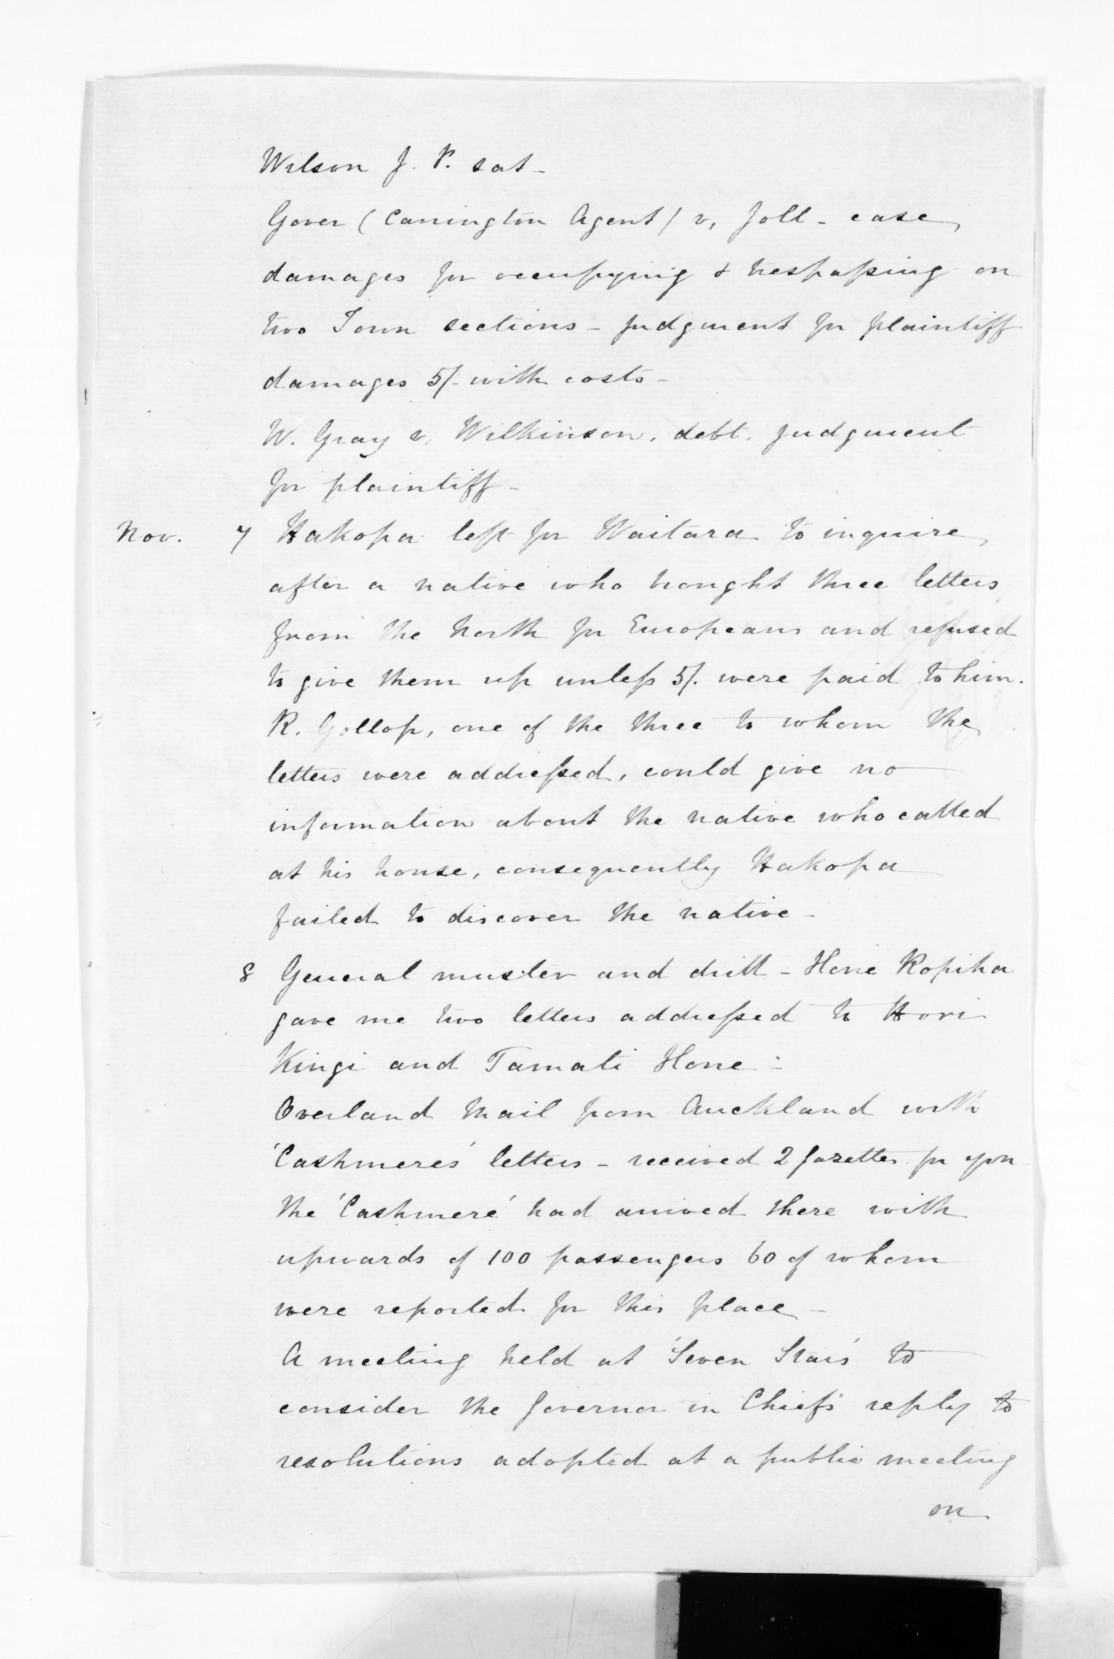 Wilson J. P. sat -
Gover (Carrington Agent) v, Joll - case,
damages for occupying & trespassing on
two Town sections - judgment for plaintiff
damages 5/- with costs -
W. Gray v. Wilkinson, debt, judgment
for plaintiff -
Nov. 7 Hakopa left for Waitara to inquire
after a native who brought three letters
from the North for Europeans and refused
to give them up unless 5/. were paid to him.
R. Gollop, one of the three to whom the
letters were addressed, could give no
information about the native who called
at his house, consequently Hakopa
failed to discover the native -
8 General muster and drill - Hone Ropiha
gave me two letters addressed to Hori
Kingi and Tamati Hone :
Overland Mail from Auckland with
'Cashmeres' letters - received 2 Gazettes for you
the 'Cashmere' had arrived there with
upwards of 100 passengers 60 of whom
were reported for this place -
A meeting held at 'Seven Stars' to
consider the Governor in Chief's reply to
resolutions adopted at a public meeting
on